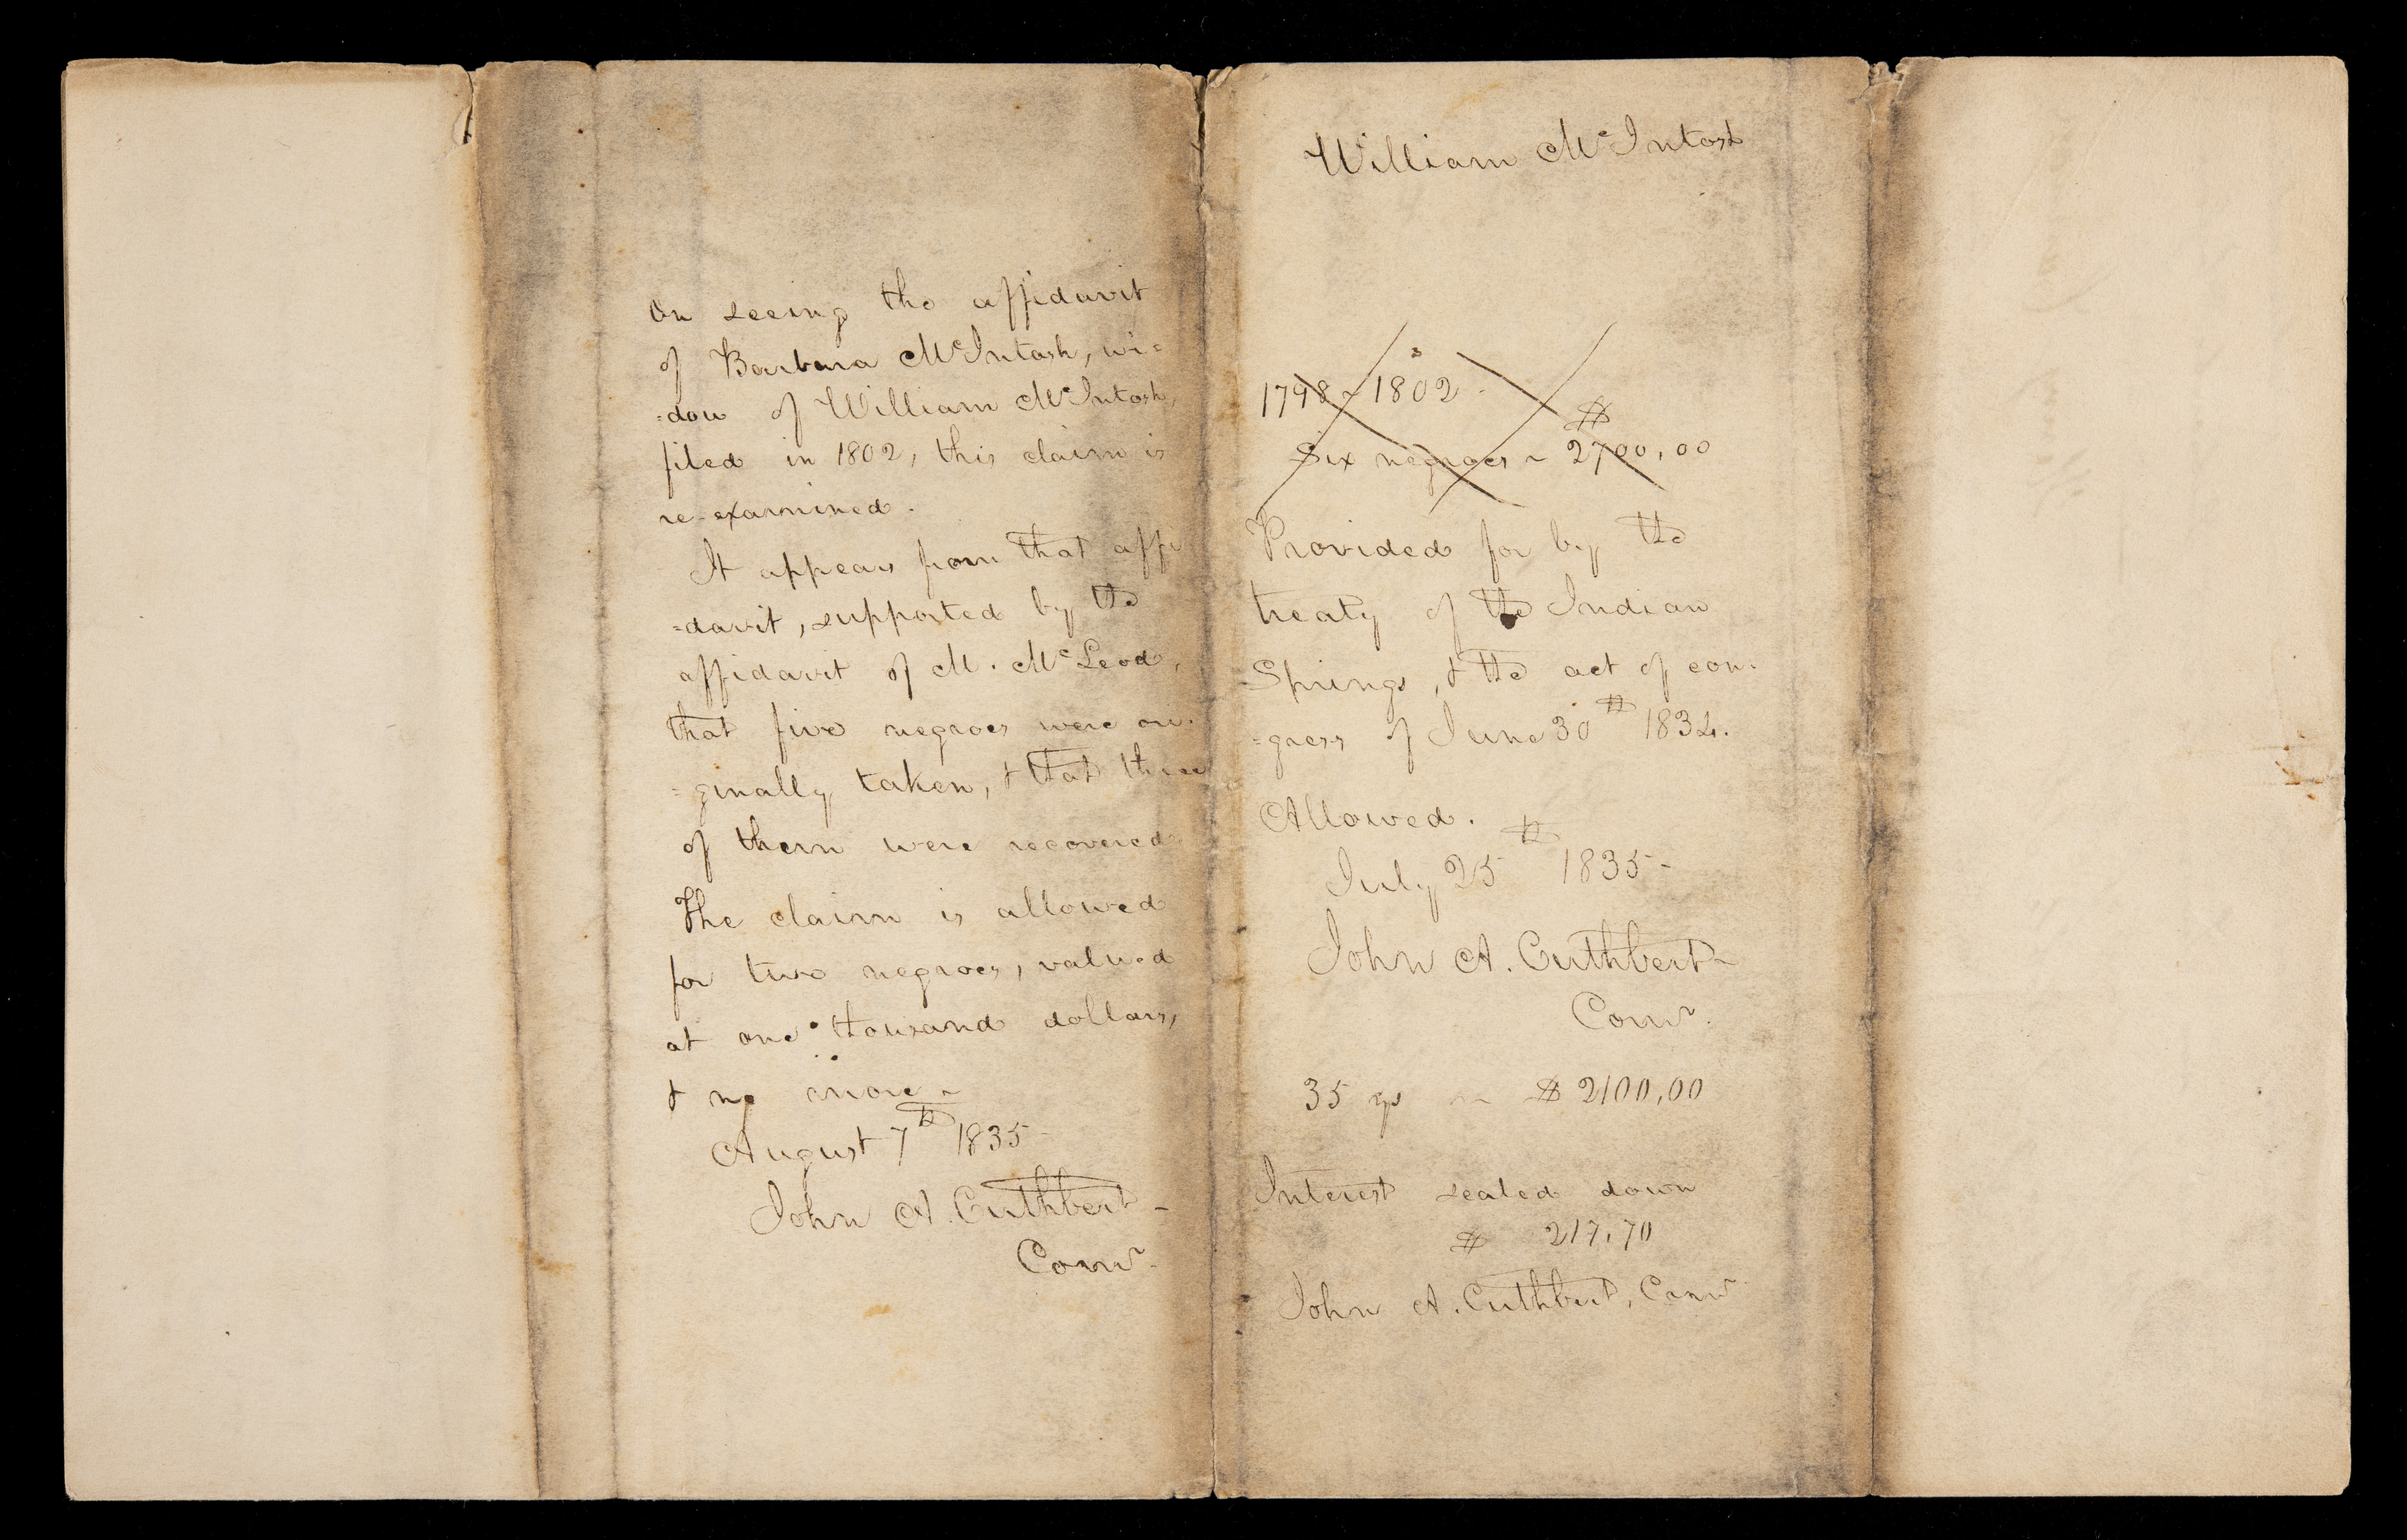 On seeing the affidavit
of Barbara McIntosh, wi=
=dow of William McIntosh,
filed in 1802, this claim is
re-examined.
It appears from that affi
=davit, supported by the
affidavit of M. McLeod,
that five negroes were ori-
=ginally taken, & that three
of them were recovered.
The claim is allowed
for two negroes, valued
at one thousand dollars,
& no more -
August 7th 1835 -
John A. Cuthbert -
Comr.
William McIntosh
1798 - 1802 -
Six negroes - $2700,00
Provided for by the
treaty of the Indian
Springs, & the act of con-
=gress of June 30th 1834.
Allowed.
July 25th 1835 -
John A. Cuthbert -
Comr.
35 ys - $2100,00
Interest scaled down
$ 217,70
John A. Cuthbert, Comr